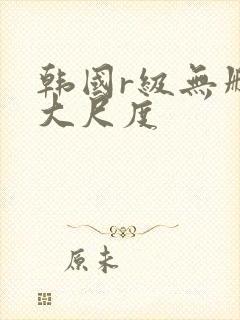 韩国r级無
大尺度
原来